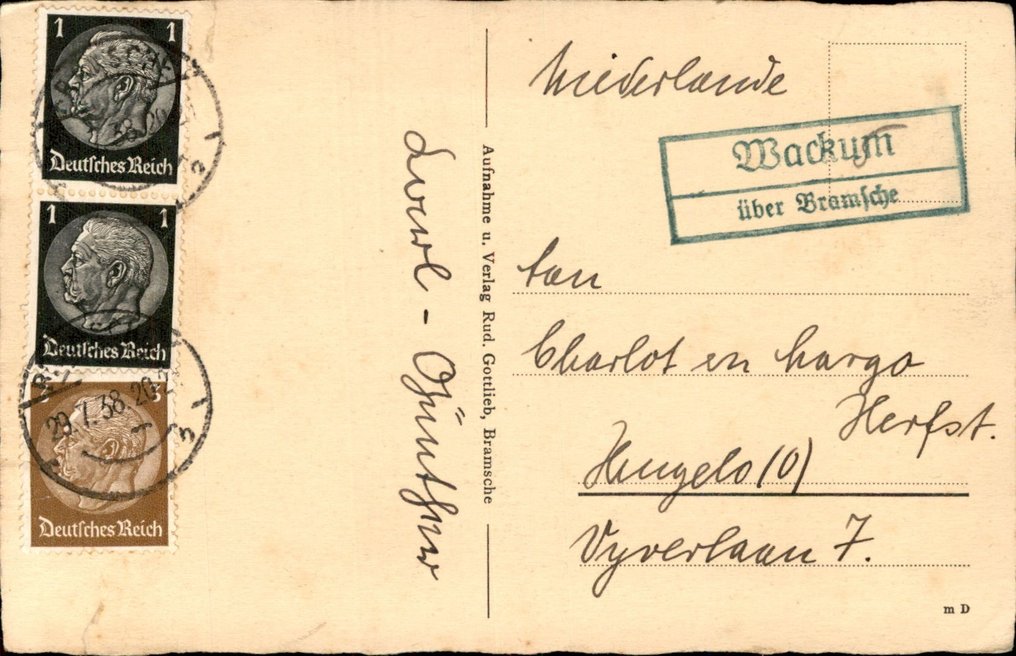 1 1
Deutsches Reich
1 1
Deutsches Reich
3
Deutsches Reich
29.7.38.20
Günther
Aufnahme u. Verlag Rud. Gottlieb, Bramsche
Niederlande
Wackum
über Bramsche
Charlot en Margo
Herfst.
Hengelo (O)
Vyverlaan 7.
m D